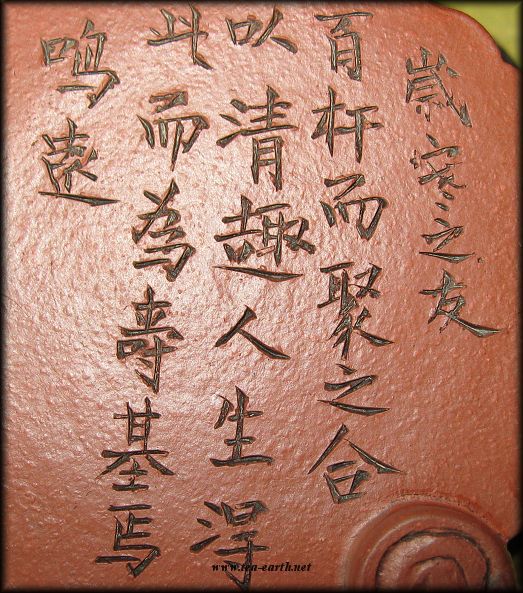 歲寒之友
百杆而聚之合
以清趣人生淂
此而為壽基焉
鳴遠
www.tea-earth.net